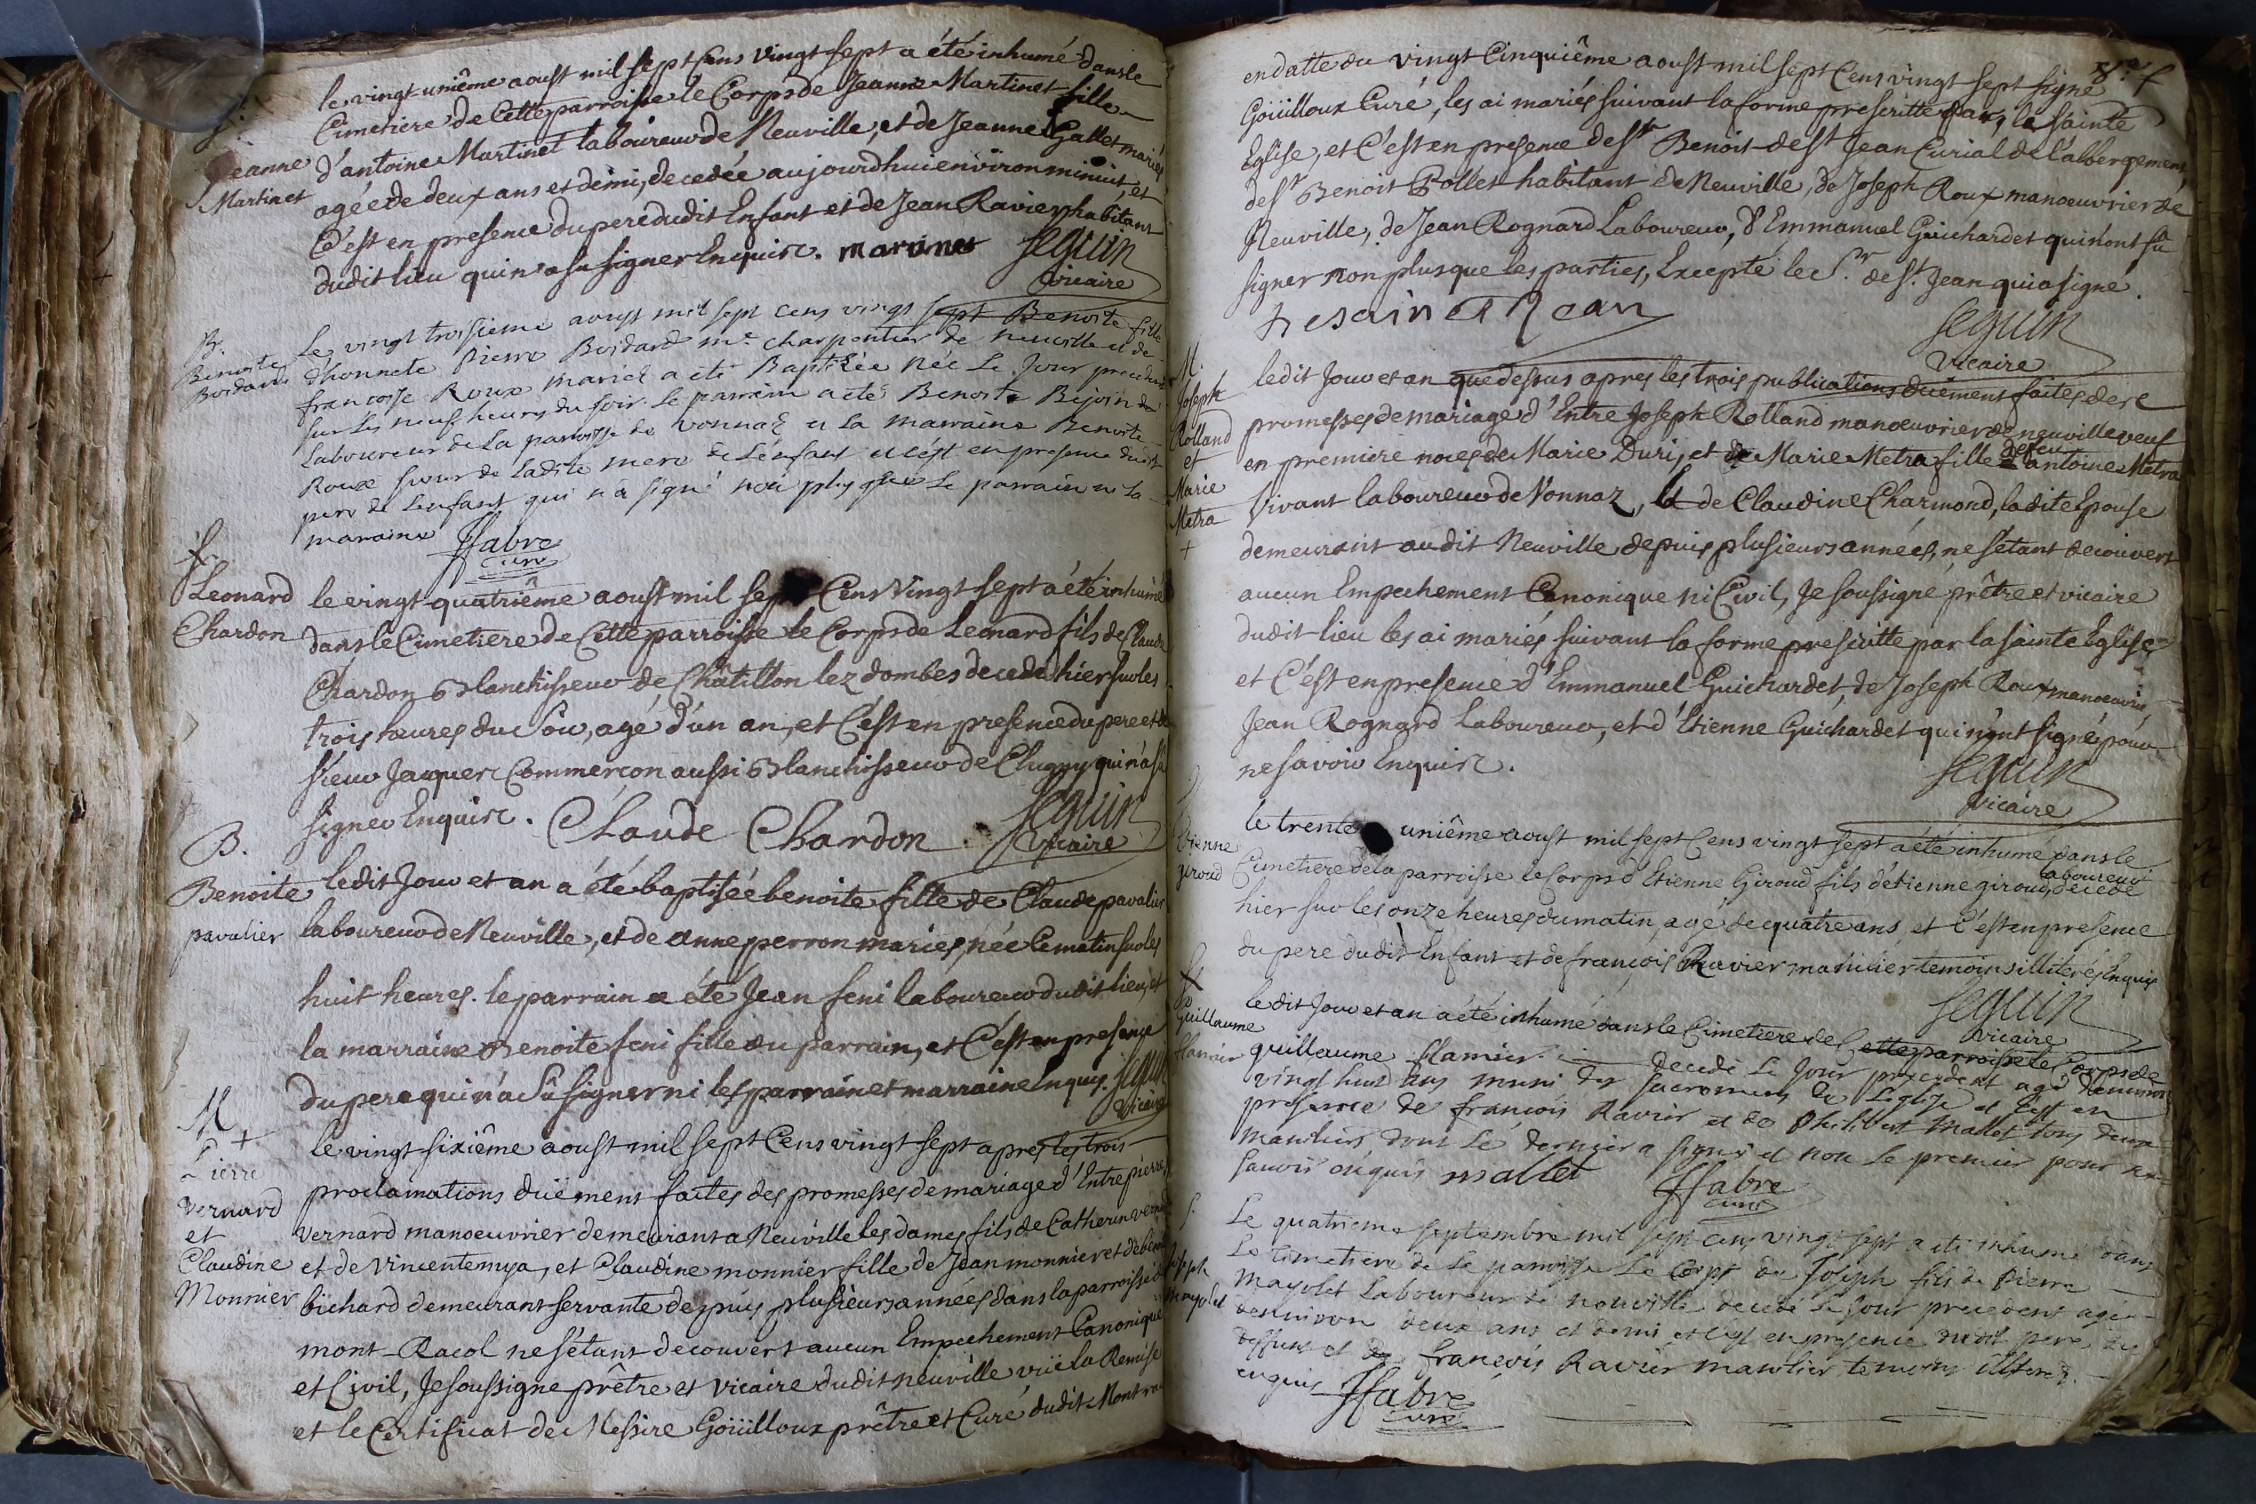 S.
Jeanne
Martinet
le vingt unième aoust mil sept cens vingt sept a été inhumé dans le
Cimetiere de Cette parroisse le Corps de Jeanne Martinet fille
d'antoine Martinet laboureur de Neuville, et de Jeanne Gallet mariés
agée de deux ans et demi, decedée aujourdhui environ minuit, et
C'est en presence du pere dudit Enfant et de Jean Ravier habitant
dudit lieu qui n'a su signer Enquise. martinet Seguin
vicaire
B.
Benoite
Boidard
Le vingt troisieme aoust mil sept cens vingt sept Benoite fille
dhonnete Pierre Boidard me charpentier de neuville et de
francoise Roux mariez a été Baptisée née Le Jour precedent
sur Les neuf heures du soir. Le parrain a eté Benoit Bejoin
Laboureur de La paroisse de vonnaz et La marraine Benoite
Roux sœur de Ladite mere de L'enfant et c'est en presence dudit
pere de L'enfant qui n'a signé non plus que Le parrain ni La
maraine ffabre
curé
Leonard
Chardon
le vingt quatriême aoust mil sept Cens vingt sept a été inhumé
dans le Cimetiere de Cette parroisse le Corps de Leonard fils de Claude
Chardon Blanchisseur de Châtillon lez dombes decedé hier sur les
trois heures du Soir, agé d'un an, et C'est en presence du pere et de
sieur Jacques Commerçon aussi Blanchisseur de Clugny qui n'a su
signer Enquise. Claude Chardon Seguin
vicaire
B.
Benoite
pavalier
ledit Jour et an a été baptisée benoite fille de Claude pavalier
laboureur de Neuville, et de anne perron mariés, née Ce matin sur les
huit heures. le parrain a été Jean feni laboureur dudit lieu, et
la marraine Benoite feni fille du parrain, et C'est en presence
du pere qui n'a sû signer ni les parrain et marraine Enquis. Seguin
vicaire
M
+
Pierre
Vernard
et
Claudine
Monnier
le vingt sixiême aoust mil sept Cens vingt sept apres les trois
proclamations düement faites des promesses de mariage d'Entre pierre
Vernard manoeuvrier demeurant a Neuville les dames fils de Catherin vernard
et de Vincente mya, et Claudine monnier fille de Jean monnier et de benoite
bichard demeurant servante depuis plusieurs années dans la parroisse de
mont-Racol ne s'étant decouvert aucun Empechement Canonique
et Civil, Je soussigné prêtre et vicaire dudit neuville vüe la Remise
et le Certificat de Messire Goüilloux prêtre et Curé dudit Montracol
en datte du vingt Cinquiême aoust mil sept Cens vingt sept signé
Goüilloux Curé, les ai mariés suivant la forme prescritte par la sainte
Eglise, et C'est en presence de sr Benoit de st Jean Curial de l'albergement,
de sr Benoit Pollet habitant de Neuville, de Joseph Roux manoeuvrier de
Neuville, de Jean Rognard Laboureur, d'Emmanuel Guichardet qui n'ont sû
signer non plus que les parties, Excepté le Sr. de St. Jean qui a signé.
De sain t Jean Seguin
vicaire
M.
Joseph
Rolland
et
Marie
Metra
+
ledit Jour et an que dessus apres les trois publications düement faites de
promesses de mariage d'Entre Joseph Rolland manoeuvrier de neuville veuf
en premiere noces de Marie Duri, et de Marie Metra fille de feu antoine Metra
Vivant laboureur de Vonnaz, et de Claudine Charmond, ladite Epouse
demeurant audit Neuville depuis plusieurs années, ne s'étant decouvert
aucun Empechement Canonique ni Civil, Je soussigné prêtre et vicaire
dudit lieu les ai mariés suivant la forme prescritte par la sainte Eglise,
et C'est en presence d'Emmanuel Guichardet, de Joseph Roux manoeuvrier,
Jean Rognard Laboureur, et d'Etienne Guichardet qui n'ont signé pour
ne savoir Enquise. Seguin
vicaire
Etienne
giroud
le trente uniême aoust mil sept Cens vingt sept a été inhumé dans le
Cimetiere de la parroisse le Corps d'Etienne Giroud fils d'étienne giroud, laboureur decedé
hier sur les onze heures du matin, agé de quatre ans, et C'est en presence
du pere dudit Enfant et de françois Ravier manilier temoins illiterés Enquis
Seguin
vicaire
Guillaume
flamier
le dit Jour et an a été inhumé dans le Cimetiere de Cette parroisse le Corps de
guillaume flamier decedé Le Jour precedent agé d'environ
vingt huit ans muni des sacremens de L'eglise et C'est en
presence de françois Ravier et de Philibert Mallet tous deux
manliers dont Le dernier a signé et non Le premier pour ne
savoir enquis mallet ffabre
curé
S.
Joseph
mayolet
Le quatrieme septembre mil sept cens vingt sept a été inhumé dans
Le Cimetiere de La paroisse Le Corps de Joseph fils de Pierre
Mayolet Laboureur de neuville decedé Le Jour precedent agé
d'environ deux ans et demi et C'est en presence dudit pere du
deffunt et de françois Ravier manlier temoins illiterés
enquis ffabre
curé